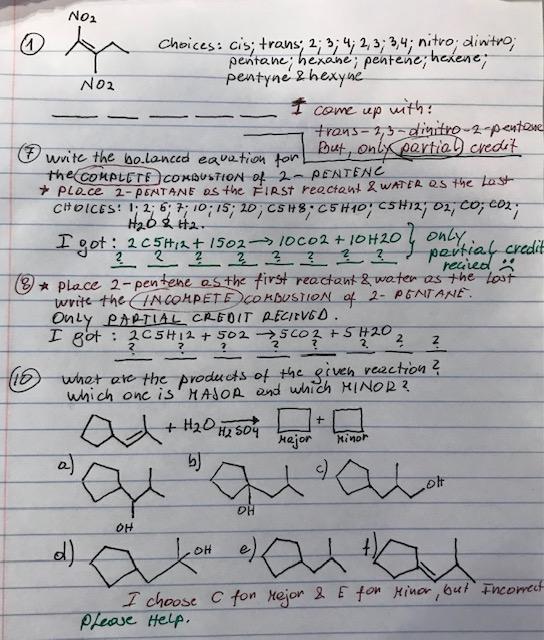 NO2
① Choices: cis; trans; 2; 3; 4; 2,3; 3,4; nitro; dinitro;
pentane; hexane; pentene; hexene;
pentyne & hexyne
NO2
I came up with:
trans-2,3-dinitro-2-pentane
But, only partial credit
⑦ Write the balanced equation for
the COMPLETE combustion of 2-PENTENE
* PLACE 2-PENTANE as the FIRST reactant & WATER as the Last
CHOICES: 1; 2; 6; 7; 10; 15; 20; C5H8; C5H10; C5H12; O2; CO; CO2;
H2O & H2.
I got: 2C5H12 + 15O2 → 10CO2 + 10H2O } only
? ? ? ? ? ? ? partial credit
recived
⑧ * place 2-pentene as the first reactant & water as the last
write the INCOMPETE COMBUSTION of 2-PENTANE.
Only PARTIAL CREDIT RECIEVED.
I got: 2C5H12 + 5O2 → 5CO2 + 5H2O
? ? ? ? ? ? ? ?
⑩ what are the products of the given reaction?
which one is MAJOR and which MINOR?
+ H2O H2SO4 +
Major Minor
a) b) c) OH
OH OH
d) OH e) f)
I choose C for Major & E for Minor, but Incorrect
Please Help.